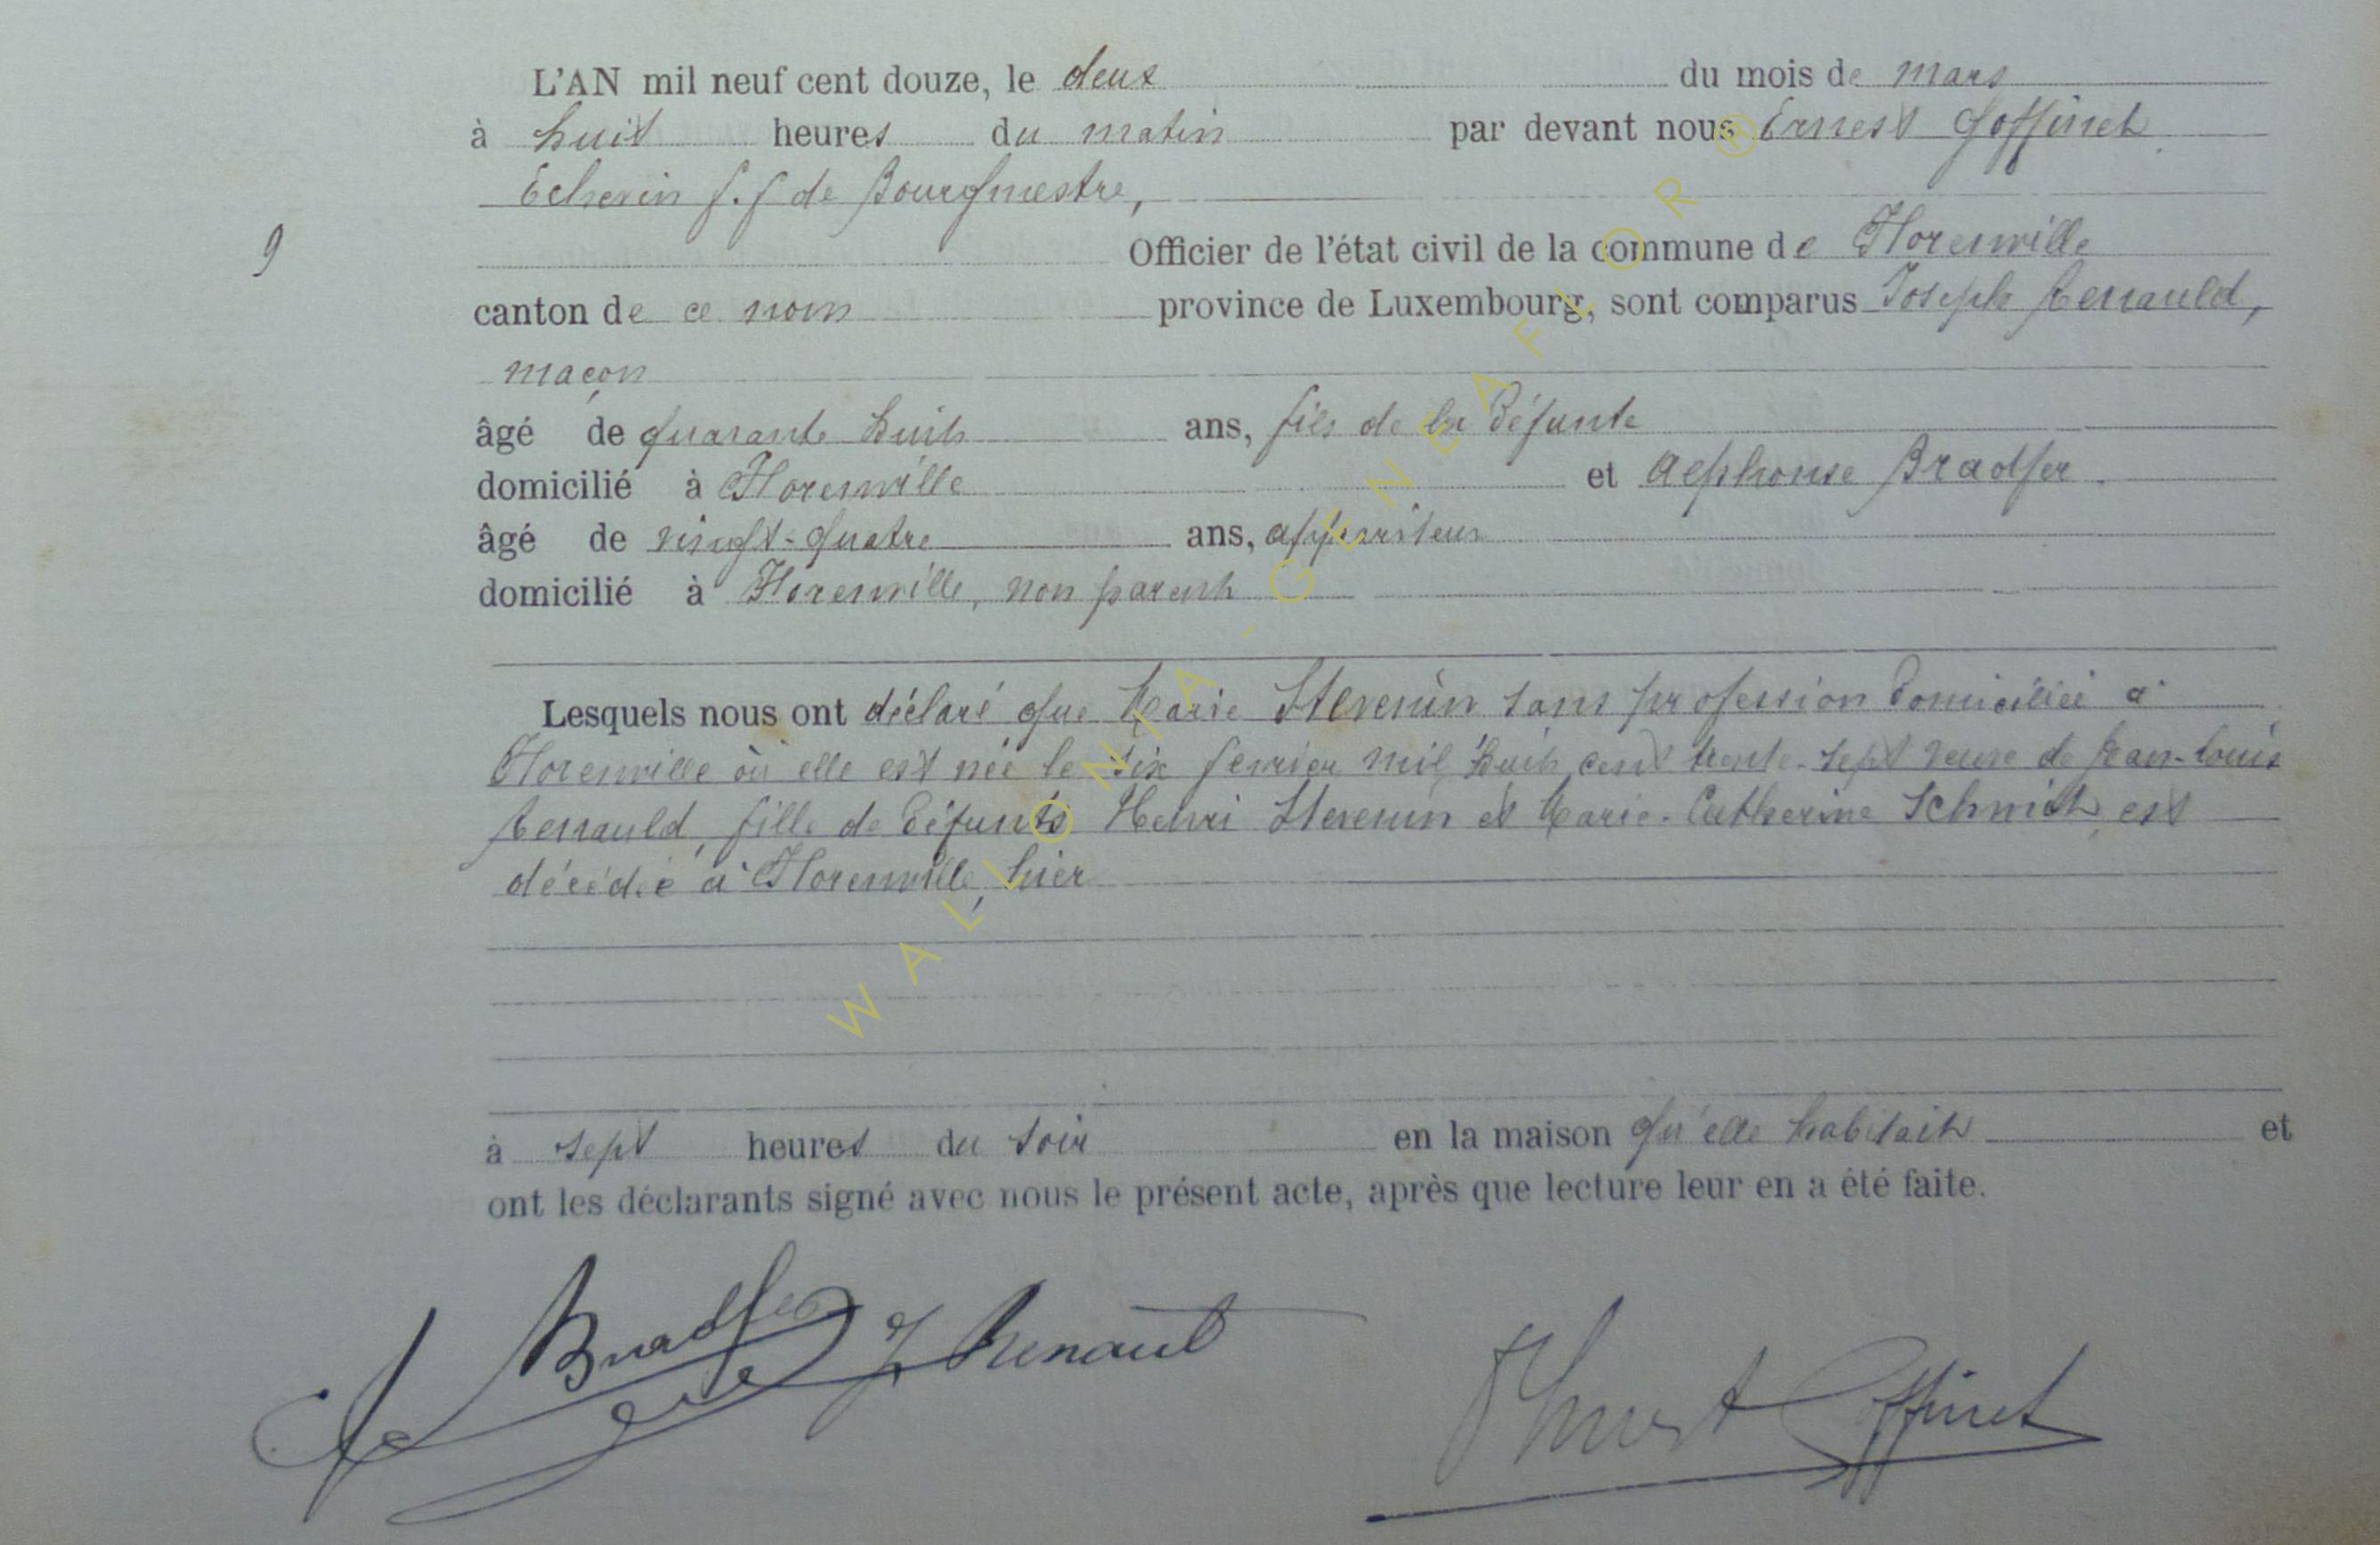 L'AN mil neuf cent douze, le deux du mois de mars
à huit heures du matin par devant nous Ernest Goffinet
Echevin f.f de Bourgmestre,
9
Officier de l'état civil de la commune de Florenville
canton de ce nom province de Luxembourg, sont comparus Joseph Renauld,
maçon
âgé de quarante huit ans, fils de la défunte
domicilié à Florenville et Alphonse Bradfer.
âgé de vingt-quatre ans, appariteur
domicilié à Florenville, non parent
Lesquels nous ont déclaré que Marie Stevenin sans profession domiciliée à
Florenville où elle est née le six fevrier mil huit cent trente-sept veuve de Jean-Louis
Renauld, fille de défunts Henri Stevenin et Marie-Catherine Schmit, est
décédée à Florenville, hier
à sept heures du soir en la maison qu'elle habitait et
ont les déclarants signé avec nous le présent acte, après que lecture leur en a été faite.
Bradfer J Renault Ernest Goffinet
WALLONIA-GENEAFLOR®